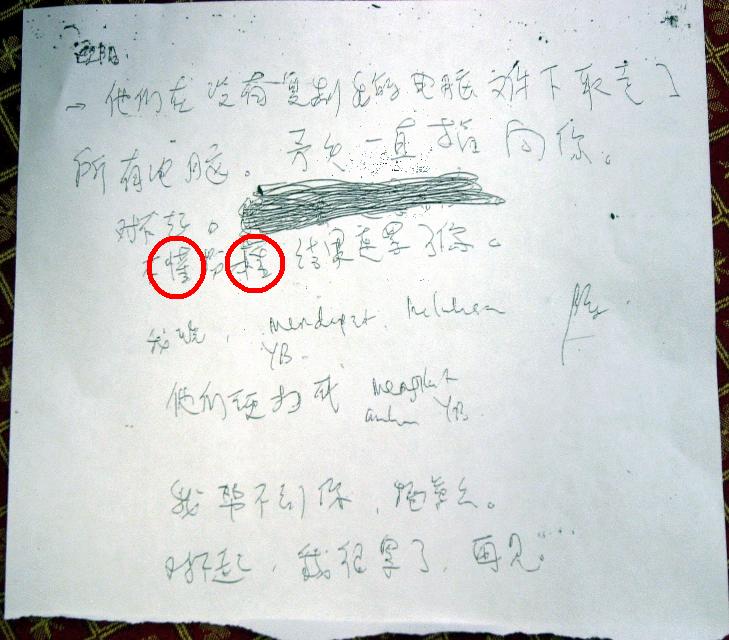 欧阳:
他们在没有复制我的电脑文件下取走了
所有电脑。矛头一直指向你。
对不起。
不懂 结果连累了你。
我说, mendapat kelulusan
YB.
他们硬扣我 mengikut
arahan YB.
我帮不到你,
对不起,我很累了,再见。